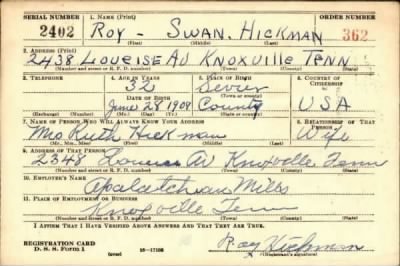 SERIAL NUMBER 1. NAME (Print) ORDER NUMBER
2402 ROY - SWAN. HICKMAN 362
(First) (Middle) (Last)
2. ADDRESS (Print)
2438 LOUEISE AV KNOXVILLE TENN
(Number and street or R. F. D. number) (Town) (County) (State)
3. TELEPHONE 4. AGE IN YEARS 5. PLACE OF BIRTH 6. COUNTRY OF CITIZENSHIP
32 Sevier
DATE OF BIRTH (Town or county)
June 28 1908 County USA
(Exchange) (Number) (Mo.) (Day) (Yr.) (State or country)
7. NAME OF PERSON WHO WILL ALWAYS KNOW YOUR ADDRESS 8. RELATIONSHIP OF THAT PERSON
Mrs Ruth Hickman Wife
(Mr., Mrs., Miss) (First) (Middle) (Last)
9. ADDRESS OF THAT PERSON
2348 Av Knoxville Tenn
(Number and street or R. F. D. number) (Town) (County) (State)
10. EMPLOYER'S NAME
Apalatchian Mills
11. PLACE OF EMPLOYMENT OR BUSINESS
Knoxville Tenn
(Number and street or R. F. D. number) (Town) (County) (State)
I AFFIRM THAT I HAVE VERIFIED ABOVE ANSWERS AND THAT THEY ARE TRUE.
Roy Hickman
REGISTRATION CARD
D. S. S. Form 1 (over) 16-17105 (Registrant's signature)